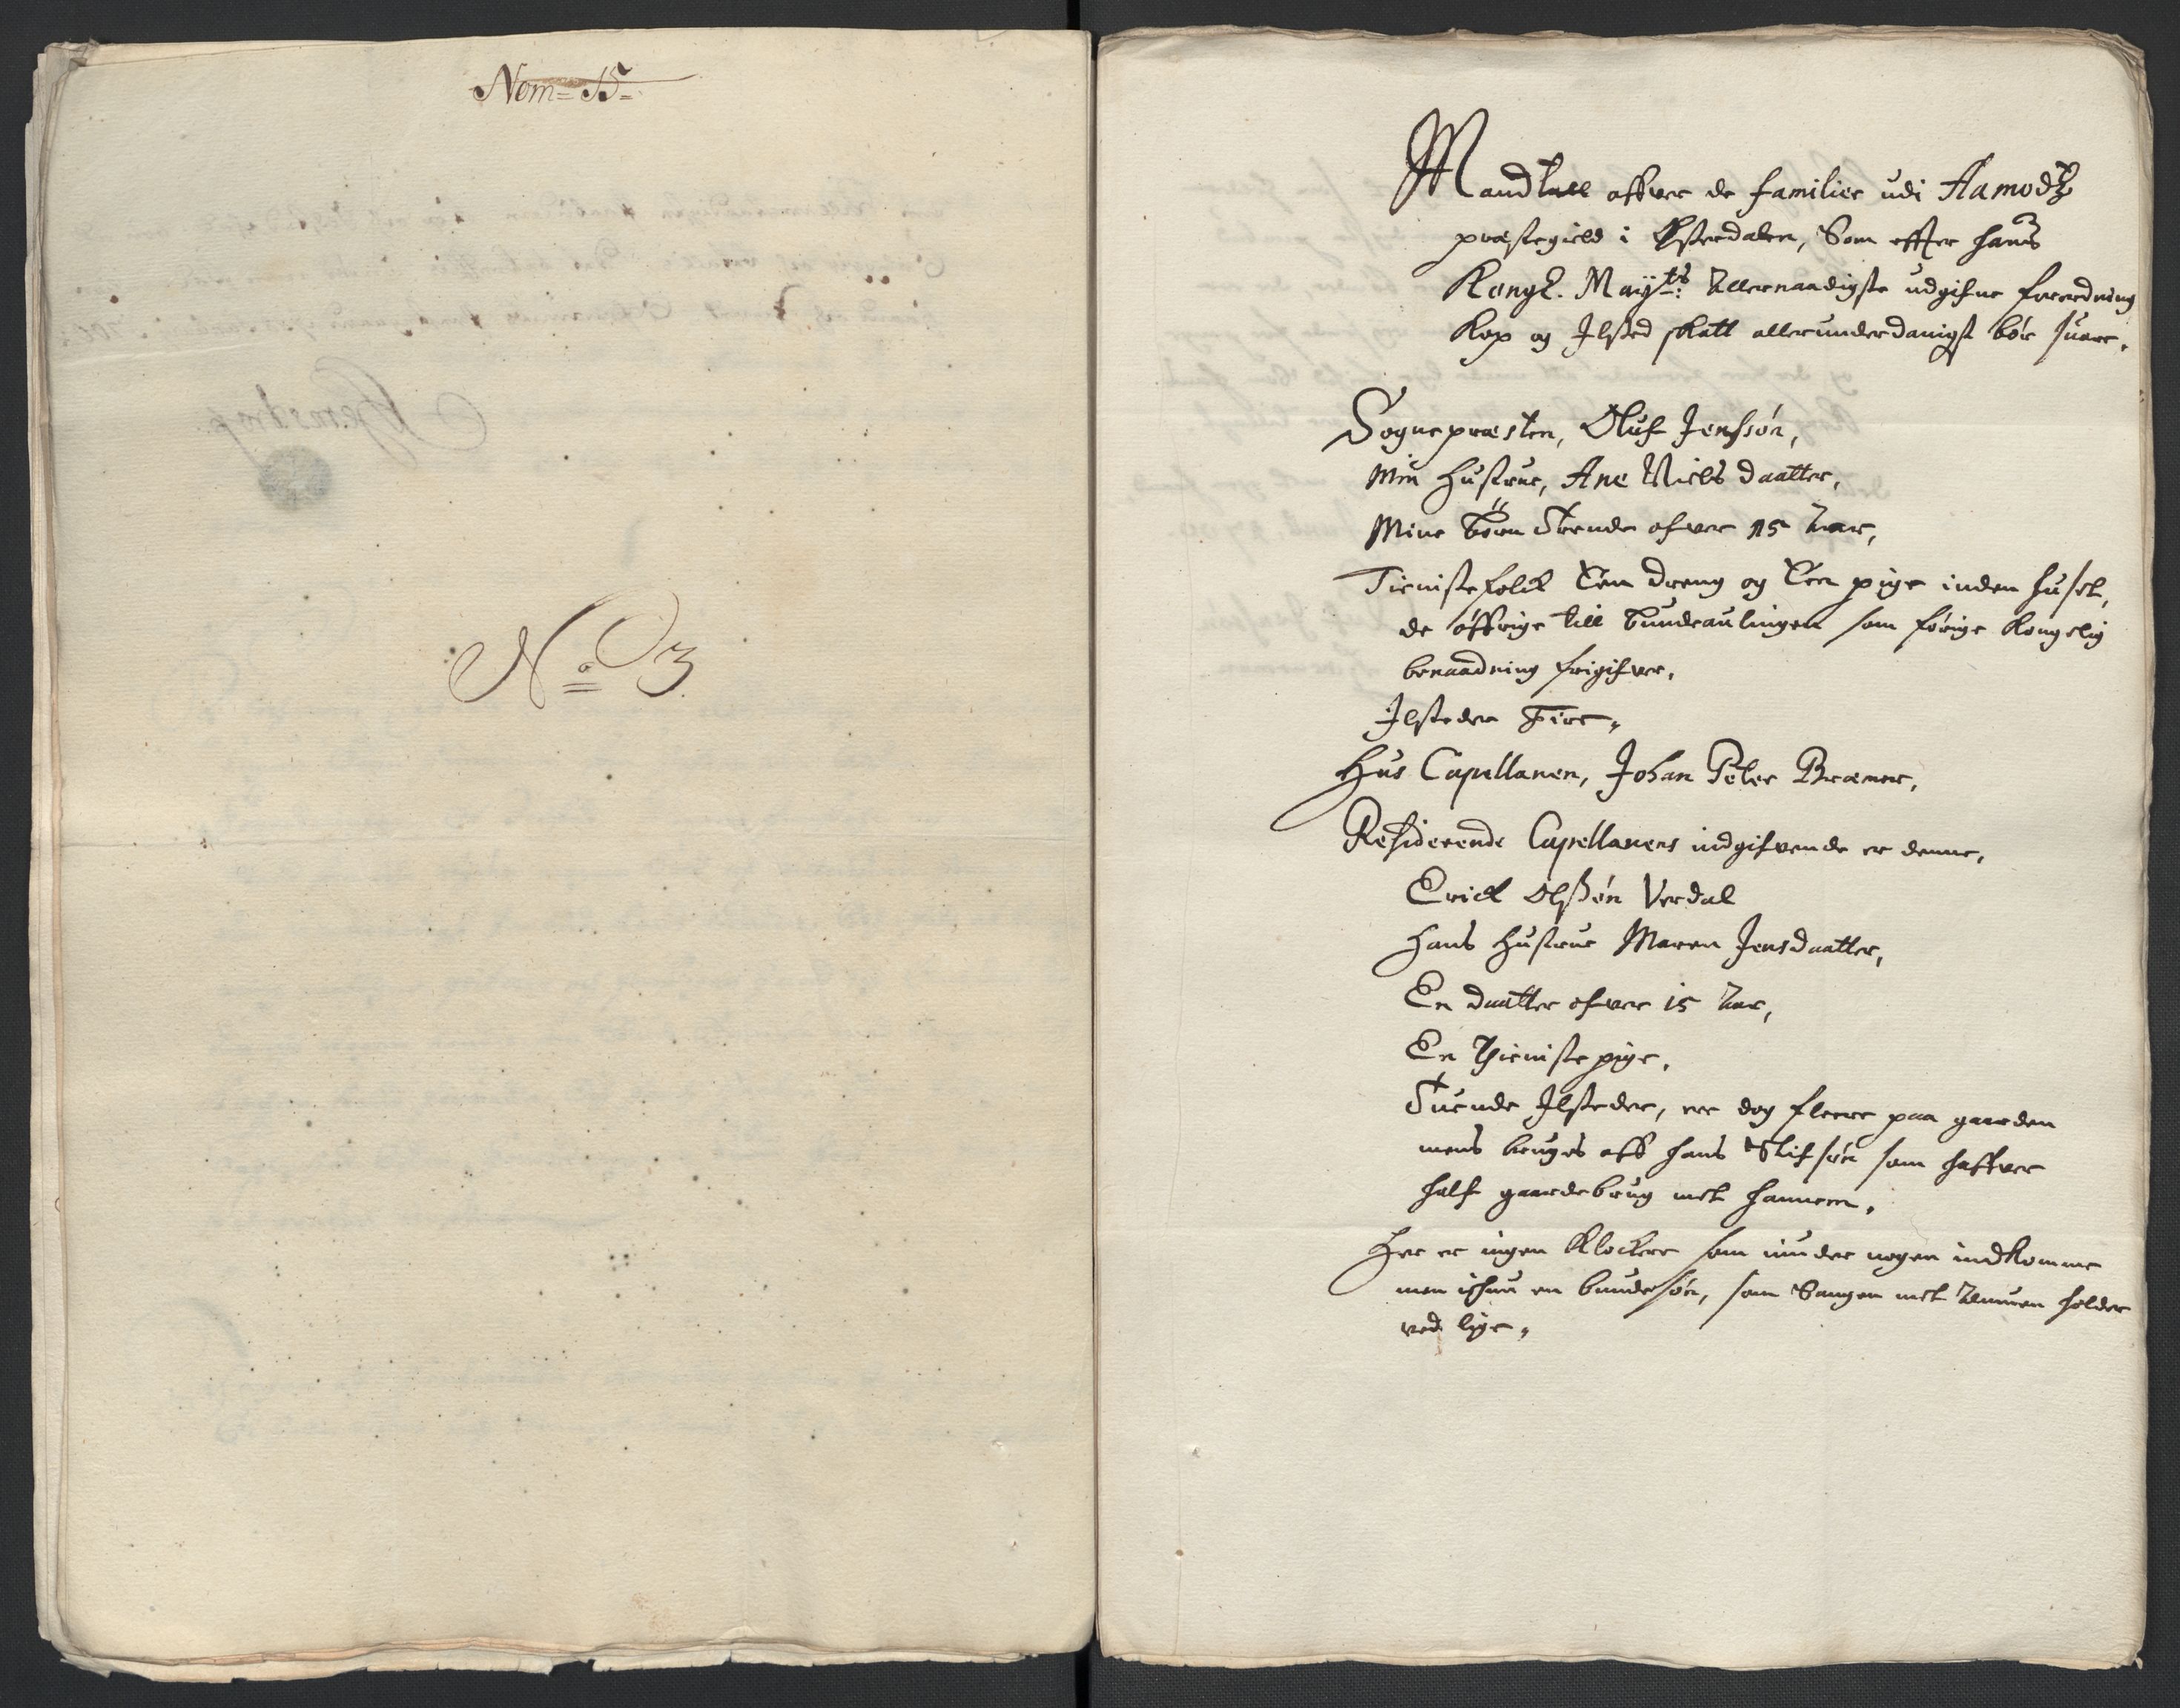 Nom= 15=
No 3
Mandtall offver de familier udi Aamodtz
præstegield i Østerdalen, Som effter hans
Kongl. Mayts: Allernaadigste udgifne forordning
Kop og Ilsted skatt allerunderdanigst bør svare.
Sognepræsten, Oluf Jenssøn,
Min hustrue, Ane Nielsdaatter,
Mine Børn Trende ofver 15 Aar,
Tienistefolck Een dreng og Een pige inden huset,
de øffrige till bundeaulingen som førige kongelig
benaadning frigifver.
Ilsteder Fire.
Hus Capellanen, Johan Peter Bræmer,
Residerende Capellanens indgifvende er denne,
Erick Olssøn Verdal
Hans hustrue Maren Jensdaatter,
En daatter ofver 15 Aar,
En Thienistepige.
Tuende Ilsteder, ere dog fleere paa gaarden
mens bruges aff hans som haffver
half gaardebrug met hannem.
Her er ingen Klockere som nogen indkomme
men en bundesøn, som Sangen met holder
ved lige.